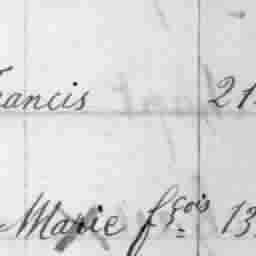 rancis 21
Marie fçois 13